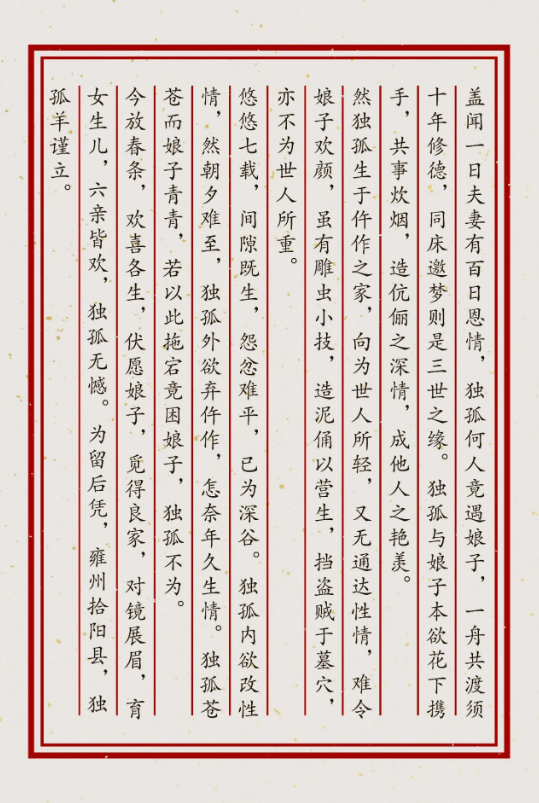 盖闻一日夫妻有百日恩情，独孤何人竟遇娘子，一舟共渡须
十年修德，同床邀梦则是三世之缘。独孤与娘子本欲花下携
手，共事炊烟，造伉俪之深情，成他人之艳羡。
然独孤生于仵作之家，向为世人所轻，又无通达性情，难令
娘子欢颜，虽有雕虫小技，造泥俑以营生，挡盗贼于墓穴，
亦不为世人所重。
悠悠七载，间隙既生，怨忿难平，已为深谷。独孤内欲改性
情，然朝夕难至，独孤外欲弃仵作，怎奈年久生情。独孤苍
苍而娘子青青，若以此拖宕竟困娘子，独孤不为。
今放春条，欢喜各生，伏愿娘子，觅得良家，对镜展眉，育
女生儿，六亲皆欢，独孤无憾。为留后凭，雍州拾阳县，独
孤羊谨立。